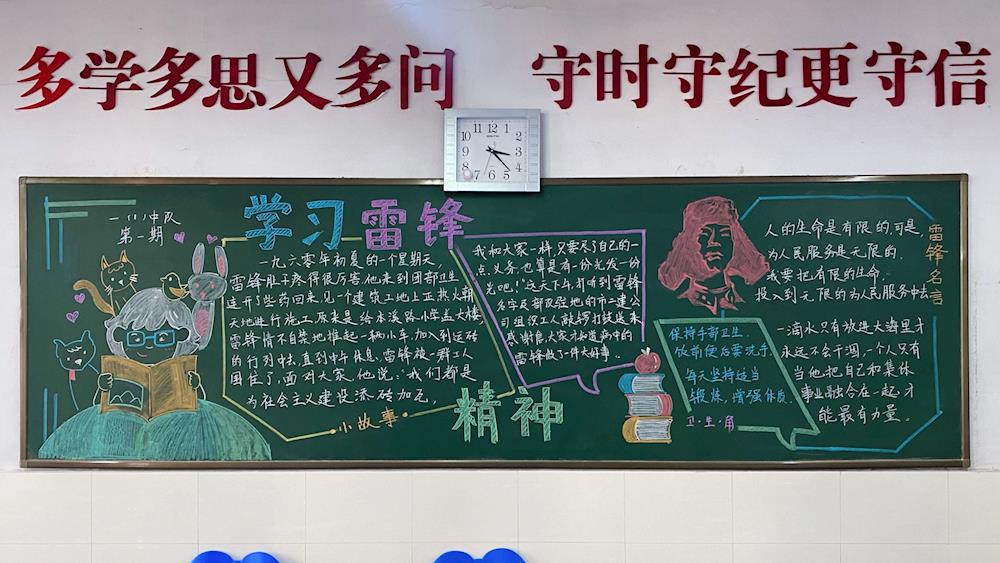 多学多思又多问
守时守纪更守信
11 12 1
10 2
9 3
8 4
7 6 5
一(1)中队
第一期
学习雷锋
精神
一九六零年初夏的一个星期天,
雷锋肚子疼得很厉害,他来到团部卫生
连开了些药回来,见一个建筑工地上正热火朝
天地进行施工,原来是给本溪路小学盖大楼,
雷锋情不自禁地推起一辆小车,加入到运砖
的行列中去,直到中午休息,雷锋被一群工人
围住了,面对大家,他说:“我们都是
为社会主义建设添砖加瓦,
小故事
我和大家一样,只要尽了自己的一
点义务,也算是有一份光发一份
光吧!”这天下午,打听到雷锋
名字及部队驻地的市二建公
司组织工人敲锣打鼓送来
感谢信,大家才知道病中的
雷锋做了一件大好事。
保持手部卫生
饭前便后要洗手.
每天坚持适当
锻炼,增强体质.
卫·生·角
雷锋名言
人的生命是有限的,可是,
为人民服务是无限的.
我要把有限的生命.
投入到无限的为人民服务中去
一滴水只有放进大海里才
永远不会干涸,一个人只有
当他把自己和集体
事业融合在一起,才
能最有力量.